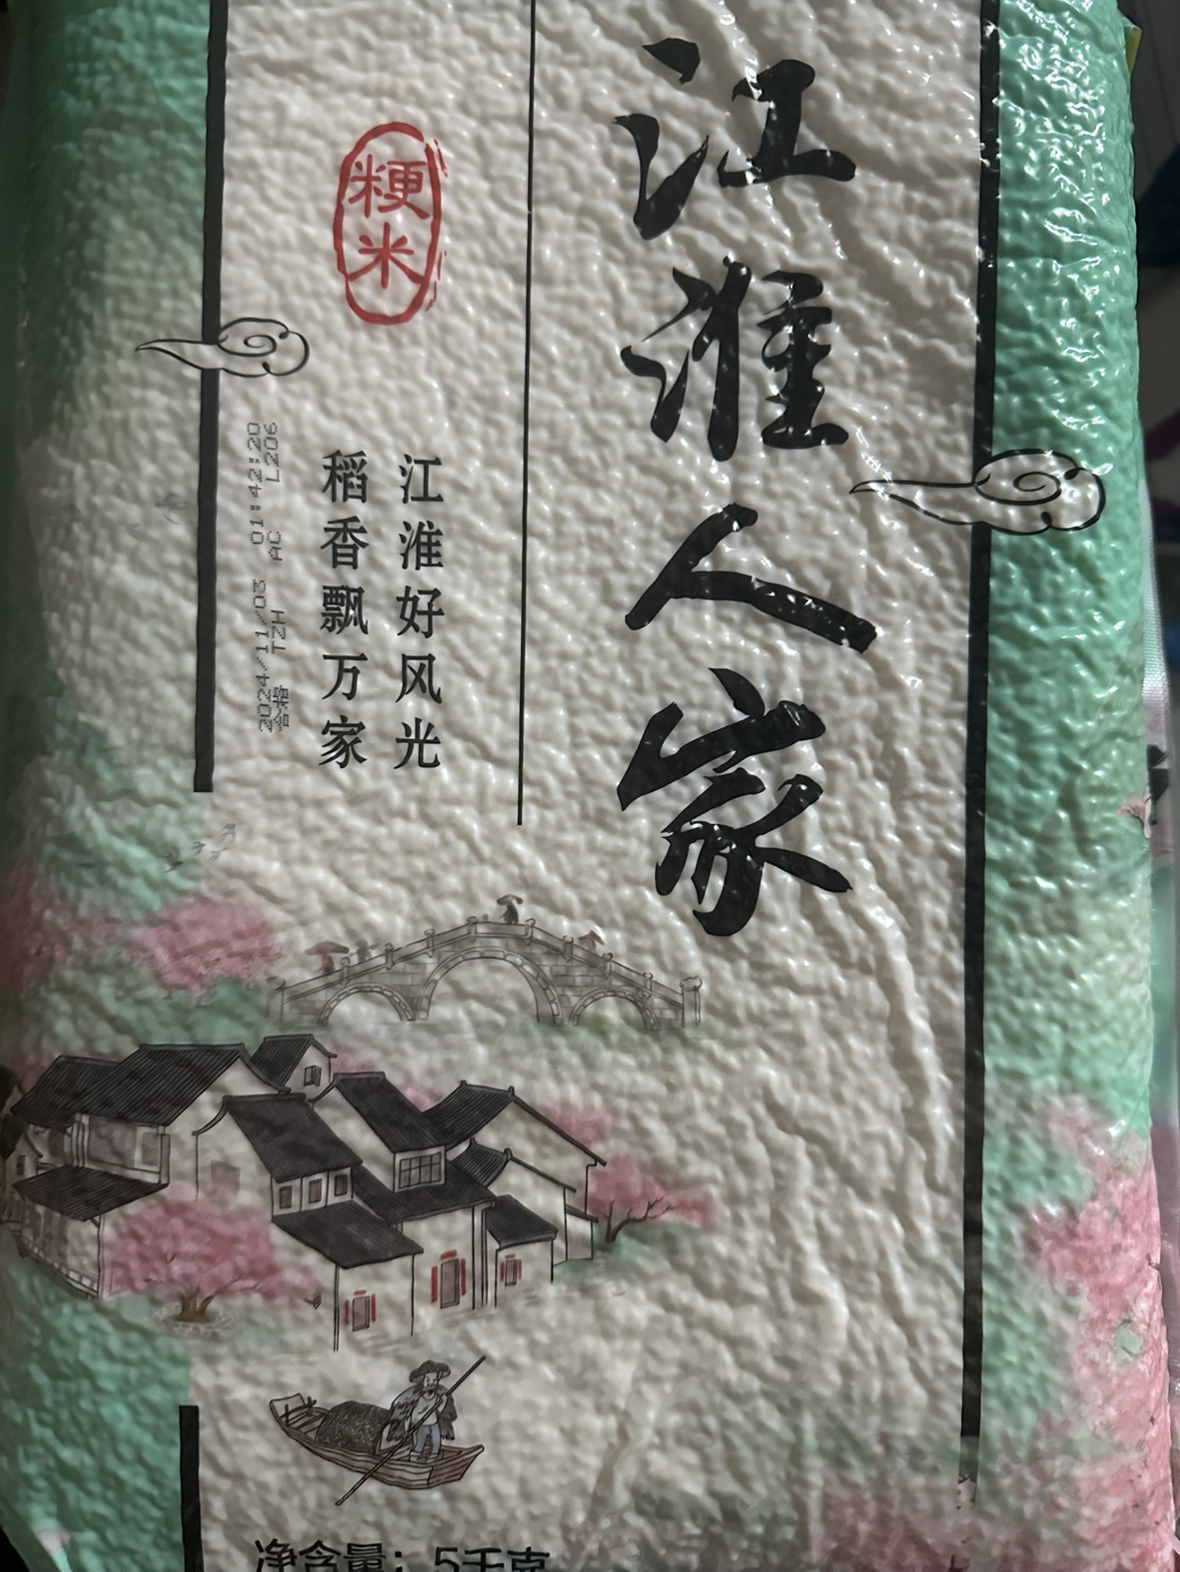 江淮人家
粳米
江淮好风光
稻香飘万家
2024/11/03 01:42:20
合格 TZH AC L206
净含量：5千克